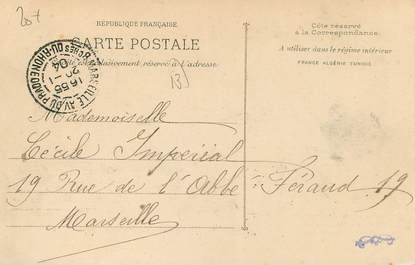 207
RÉPUBLIQUE FRANÇAISE
CARTE POSTALE
exclusivement réservé à l'adresse.
Côté réservé
à la Correspondance.
A utiliser dans le régime intérieur
FRANCE ALGÉRIE TUNISIE
MARSEILLE AV. DU PRADO
BCHES DU RHONE
15 55
20 -1
04
13
Mademoiselle
Cécile Imperial
19 Rue de l'Abbé Féraud 19
Marseille